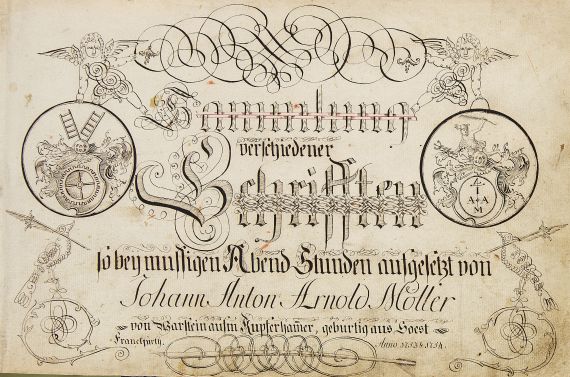 Sammlung
verschiedener
Schrifften
so bey mussigen Abend Stunden aufgesetzt von
Johann Anton Arnold Möller
von Warstein aufm Kupferham̅er, geburtig aus Soest
Franckfurth. Anno 1753 & 1754.